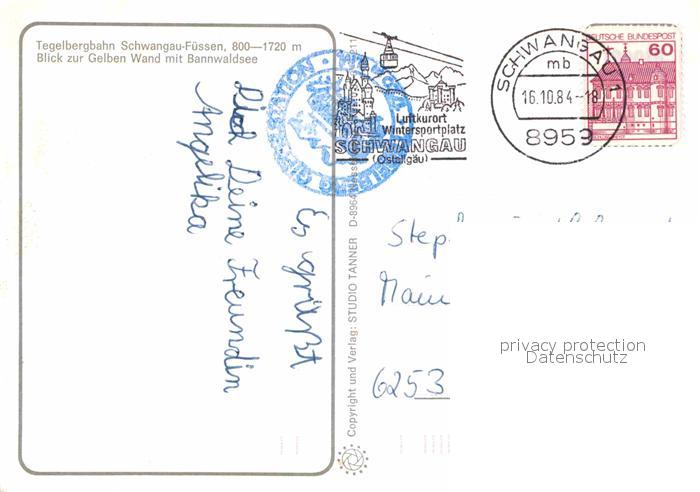 Tegelbergbahn Schwangau-Füssen, 800—1720 m
Blick zur Gelben Wand mit Bannwaldsee
Es grüßt
Dich Deine Freundin
Angelika
Copyright und Verlag: STUDIO TANNER D-8964
Luftkurort
Wintersportplatz
SCHWANGAU
(Ostallgäu)
SCHWANGAU 1
mb
16.10.84-18
8959
DEUTSCHE BUNDESPOST
60
Step
Main
6253
privacy protection
Datenschutz